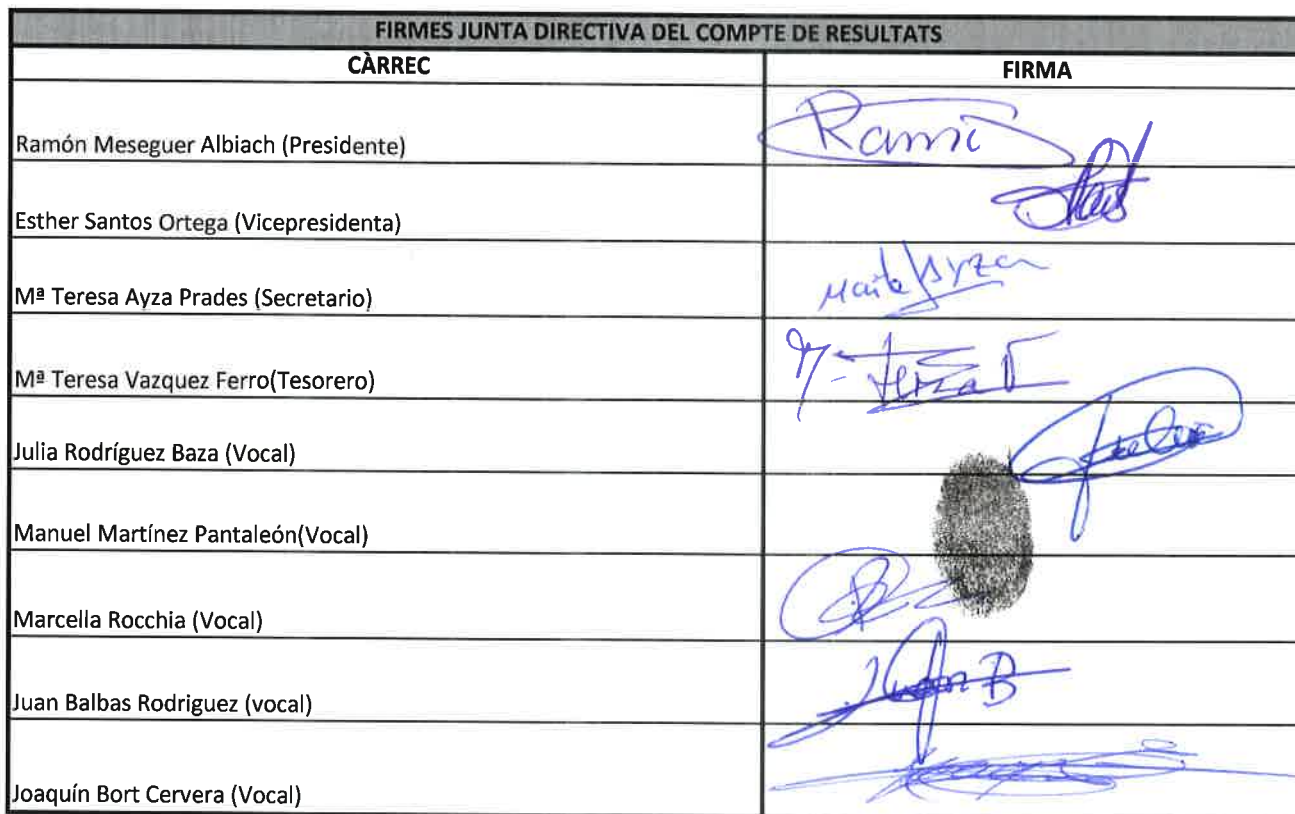 FIRMES JUNTA DIRECTIVA DEL COMPTE DE RESULTATS
CÀRREC FIRMA
Ramón Meseguer Albiach (Presidente) Ramón
Esther Santos Ortega (Vicepresidenta)
Mª Teresa Ayza Prades (Secretario) Maite Ayza
Mª Teresa Vazquez Ferro(Tesorero) Mª Teresa V
Julia Rodríguez Baza (Vocal) Julia
Manuel Martínez Pantaleón(Vocal)
Marcella Rocchia (Vocal)
Juan Balbas Rodriguez (vocal) Juan B
Joaquín Bort Cervera (Vocal)